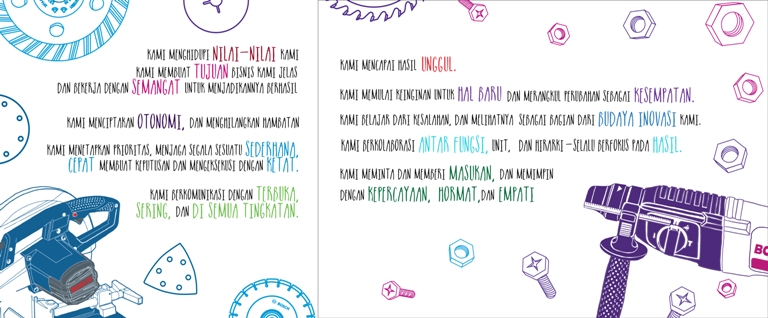 KAMI MENGHIDUPI NILAI-NILAI KAMI
KAMI MEMBUAT TUJUAN BISNIS KAMI JELAS
DAN BEKERJA DENGAN SEMANGAT UNTUK MENJADIKANNYA BERHASIL
KAMI MENCIPTAKAN OTONOMI, DAN MENGHILANGKAN HAMBATAN
KAMI MENETAPKAN PRIORITAS, MENJAGA SEGALA SESUATU SEDERHANA,
CEPAT MEMBUAT KEPUTUSAN DAN MENGEKSEKUSI DENGAN KETAT.
KAMI BERKOMUNIKASI DENGAN TERBUKA,
SERING, DAN DI SEMUA TINGKATAN.
BOSCH
KAMI MENCAPAI HASIL UNGGUL.
KAMI MEMULAI KEINGINAN UNTUK HAL BARU DAN MERANGKUL PERUBAHAN SEBAGAI KESEMPATAN.
KAMI BELAJAR DARI KESALAHAN, DAN MELIHATNYA SEBAGAI BAGIAN DARI BUDAYA INOVASI KAMI.
KAMI BERKOLABORASI ANTAR FUNGSI, UNIT, DAN HIRARKI - SELALU BERFOKUS PADA HASIL.
KAMI MEMINTA DAN MEMBERI MASUKAN, DAN MEMIMPIN
DENGAN KEPERCAYAAN, HORMAT, DAN EMPATI
BO